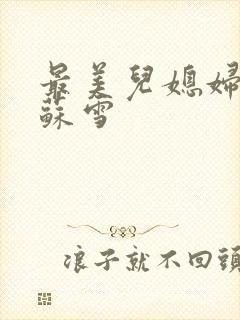 最美兒媳婦
蘇雪
浪子就不回頭